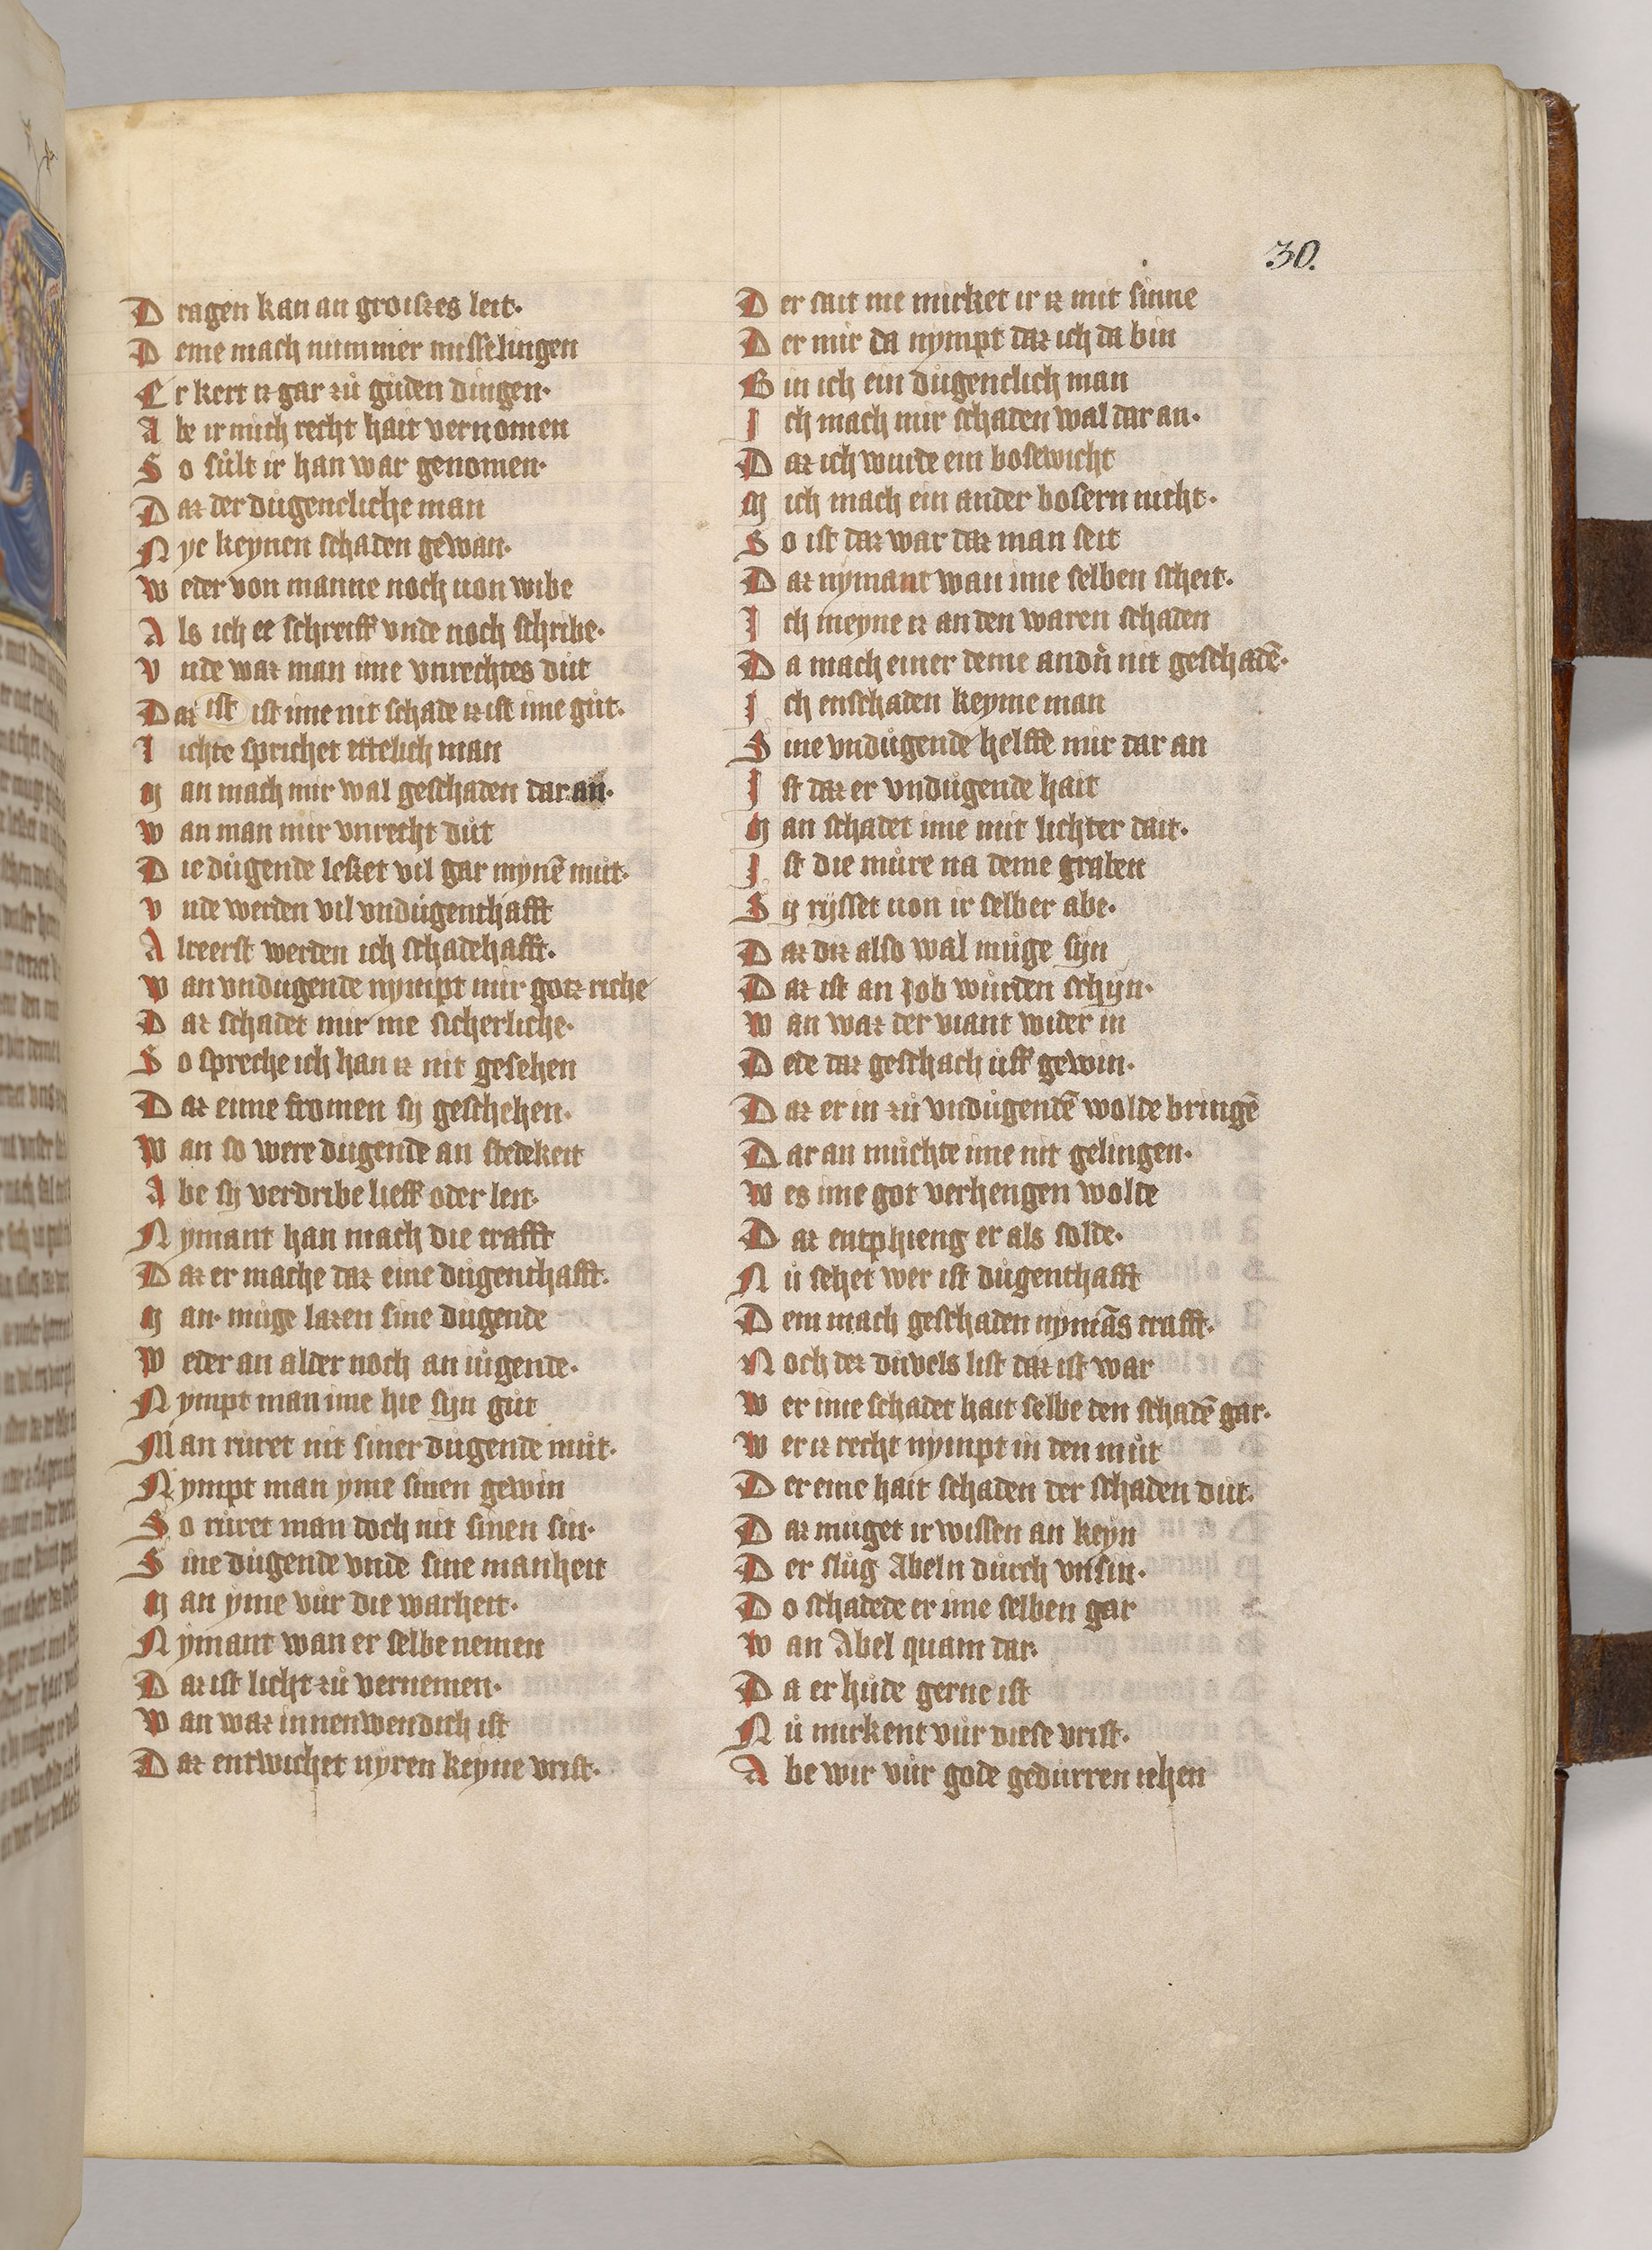 30.
Dragen kan an groiszes leit·
Deme mach nummer misselingen
Er kert iz gar zů gůden dingen·
Abe ir mich recht hait vernomen
So sůlt ir han war genomen·
Daz der důgentliche man
Nye keynen schaden gewan·
Weder von manne noch uon wibe
Als ich ee schreiff vnde noch schribe·
Vnde waz man ime vnrechtes důt
Daz ist ist ime nit schade iz ist ime gůt·
Lichte sprichet ettelich man
Man mach mir wal geschaden dar an·
Wan man mir vnrecht důt
Die důgende lesszet vil gar mynē mut·
Vnde werden vil vndůgenthafft
Alreerst werden ich schadehafft·
Wan vndugende nympt mir gotz riche
Daz schadet mir me sicherliche·
So spreche ich han iz nit gesehen
Daz eime fromen sy geschehen·
Wan so were dugende an stedekeit
Abe sy verdribe lieff oder leit·
Nymant han mach die crafft
Daz er mache daz eine důgenthafft·
Man· můge lazen sine dugende
Weder an alder noch an iůgende·
Nympt man ime hie syn gůt
Man růret nit siner důgende můt·
Nympt man yme sinen gewin
So růret man doch nit sinen sin·
Sine důgende vnde sine manheit
Man yme vůr die warheit·
Nymant wan er selbe nemen
Daz ist licht zů vernemen·
Wan waz innenwendich ist
Daz entwichet nyren keyne vrist·
Der sait me mirket ir iz mit sinne
Der mir da nympt daz ich da bin
Bin ich ein důgentlich man
Ich mach mir schaden wal dar an·
Daz ich wurde ein bosewicht
Mich mach ein ander bosern nicht·
So ist daz war daz man seit
Daz nymant wan ime selben scheit·
Ich meyne iz an den waren schaden
Da mach einer deme andn̄ nit geschadē·
Ich enschaden keyme man
Sine vndůgende helffe mir dar an
Ist daz er vndůgende hait
Man schadet ime mit lichter dait·
Ist die můre na deme graben
Sy rysset uon ir selber abe·
Daz diz also wal můge syn
Daz ist an Job wůrden schyn·
Wan waz der viant wider in
Dede daz geschach uff gewin·
Daz er in zů vndůgendē wolde bringē
Dar an můchte ime nit gelingen·
Wes ime got verhengen wolde
Daz entphieng er als solde·
Nů sehet wer ist důgenthafft
Dem mach geschaden nymās crafft·
Noch dez důvels list daz ist war
Wer ime schadet hait selbe den schadē gar·
Wer iz recht nympt in den můt
Der eine hait schaden der schaden důt·
Daz muget ir wissen an keyn
Der slůg Abeln důrch vnsin·
Do schadede er ime selben gar
Wan Abel quam dar·
Da er hůde gerne ist
Nů mirkent vůr diese vrist·
Abe wir vůr gode gedurren iehen